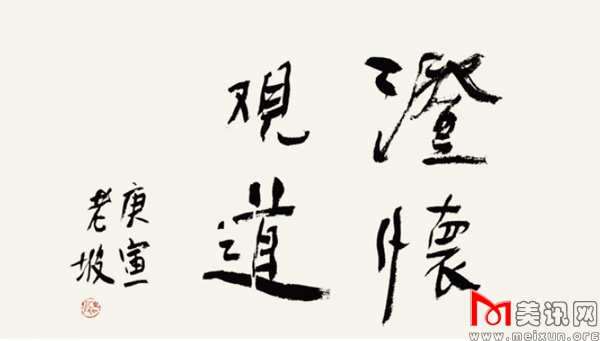 澄懷
观道
庚寅
老坡
美讯网
www.meixun.org